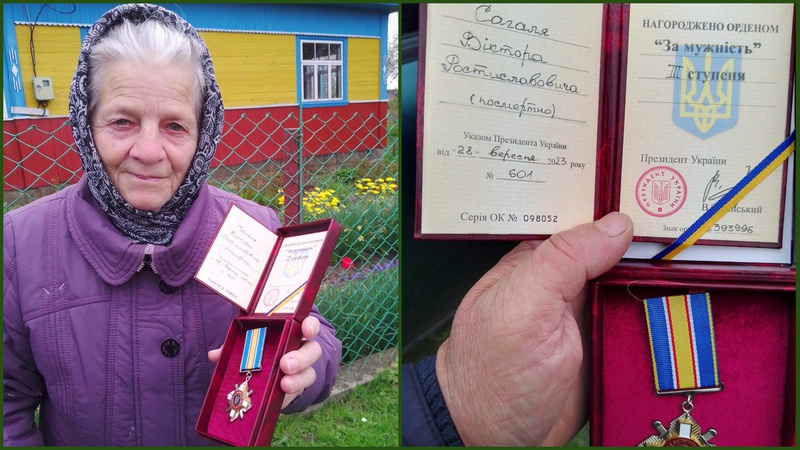 Сагаля
Віктора
Ростиславовича
(посмертно)
Указом Президента України
від "28" вересня 2023 року
№ 601
Серія ОК № 098052
НАГОРОДЖЕНО ОРДЕНОМ
"За мужність"
III ступеня
Президент України
ПРЕЗИДЕНТ УКРАЇНИ
Знак
393996